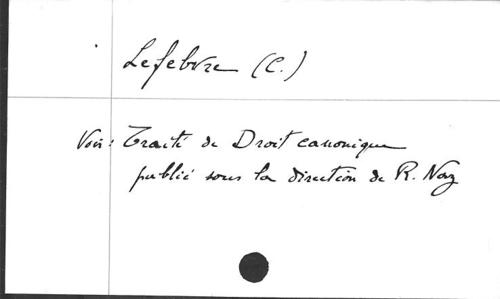 Lefebvre (C.)
Voir : Traité de Droit canonique
publié sous la direction de R. Naz